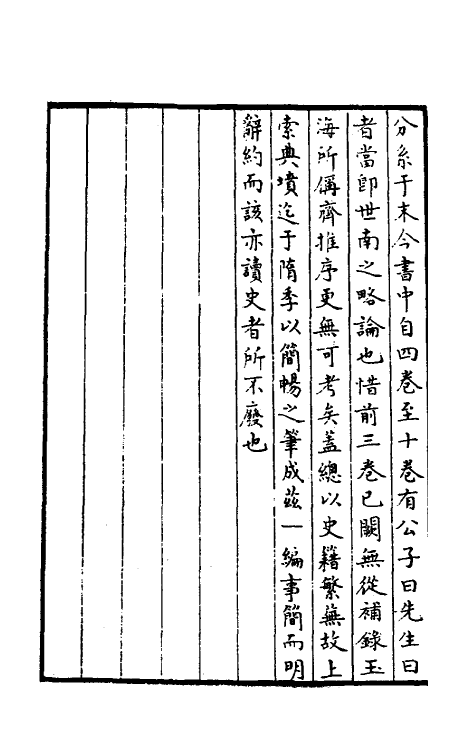 分系于末今書中自四卷至十卷有公子曰先生曰
者當卽世南之略論也惜前三卷已闕無從補錄玉
海所偁齊推序更無可考矣蓋總以史籍繁蕪故上
索典墳迄于隋季以簡暢之筆成茲一編事簡而明
辭約而該亦讀史者所不廢也